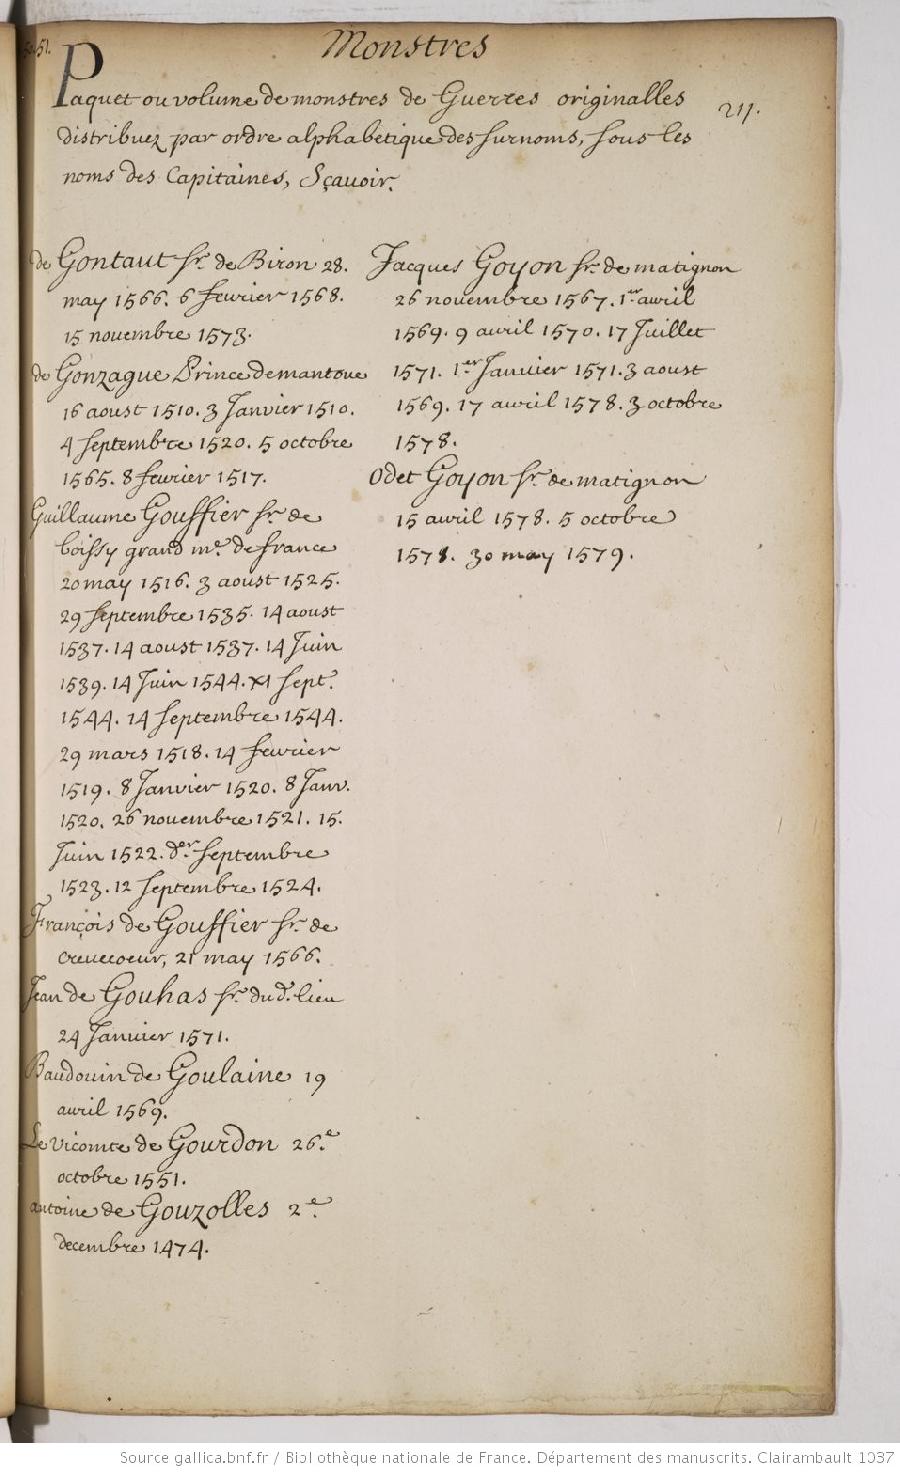 Monstres
51.
211.
Paquet ou volume de monstres de Guerres originalles
distribuez par ordre alphabetique des surnoms, sous les
noms des Capitaines, Sçavoir.
de Gontaut sr. de Biron 28.
may 1566. 6 fevrier 1568.
15 novembre 1573.
de Gonzague Prince de mantoue
16 aoust 1510. 3 Janvier 1510.
4 septembre 1520. 5 octobre
1565. 8 fevrier 1517.
Guillaume Gouffier sr. de
boissy grand me. de france
20 may 1516. 3 aoust 1525.
29 septembre 1535. 14 aoust
1537. 14 aoust 1537. 14 Juin
1539. 14 Juin 1544. XI sept.
1544. 14 septembre 1544.
29 mars 1518. 14 fevrier
1519. 8 Janvier 1520. 8 Janv.
1520. 26 novembre 1521. 15.
Juin 1522. der. septembre
1523. 12 septembre 1524.
François de Gouffier sr. de
crevecoeur, 21 may 1566.
Jean de Gouhas sr. du d. lieu
24 Janvier 1571.
Baudouin de Goulaine 19
avril 1569.
Le vicomte de Gourdon 26e.
octobre 1551.
antoine de Gouzolles 2e.
decembre 1474.
Jacques Goyon sr. de matignon
26 novembre 1567. 1er. avril
1569. 9 avril 1570. 17 Juillet
1571. 1er. Janvier 1571. 3 aoust
1569. 17 avril 1578. 3 octobre
1578.
Odet Goyon sr. de matignon
15 avril 1578. 5 octobre
1578. 30 may 1579.
Source gallica.bnf.fr / Bibliothèque nationale de France. Département des manuscrits. Clairambault 1037